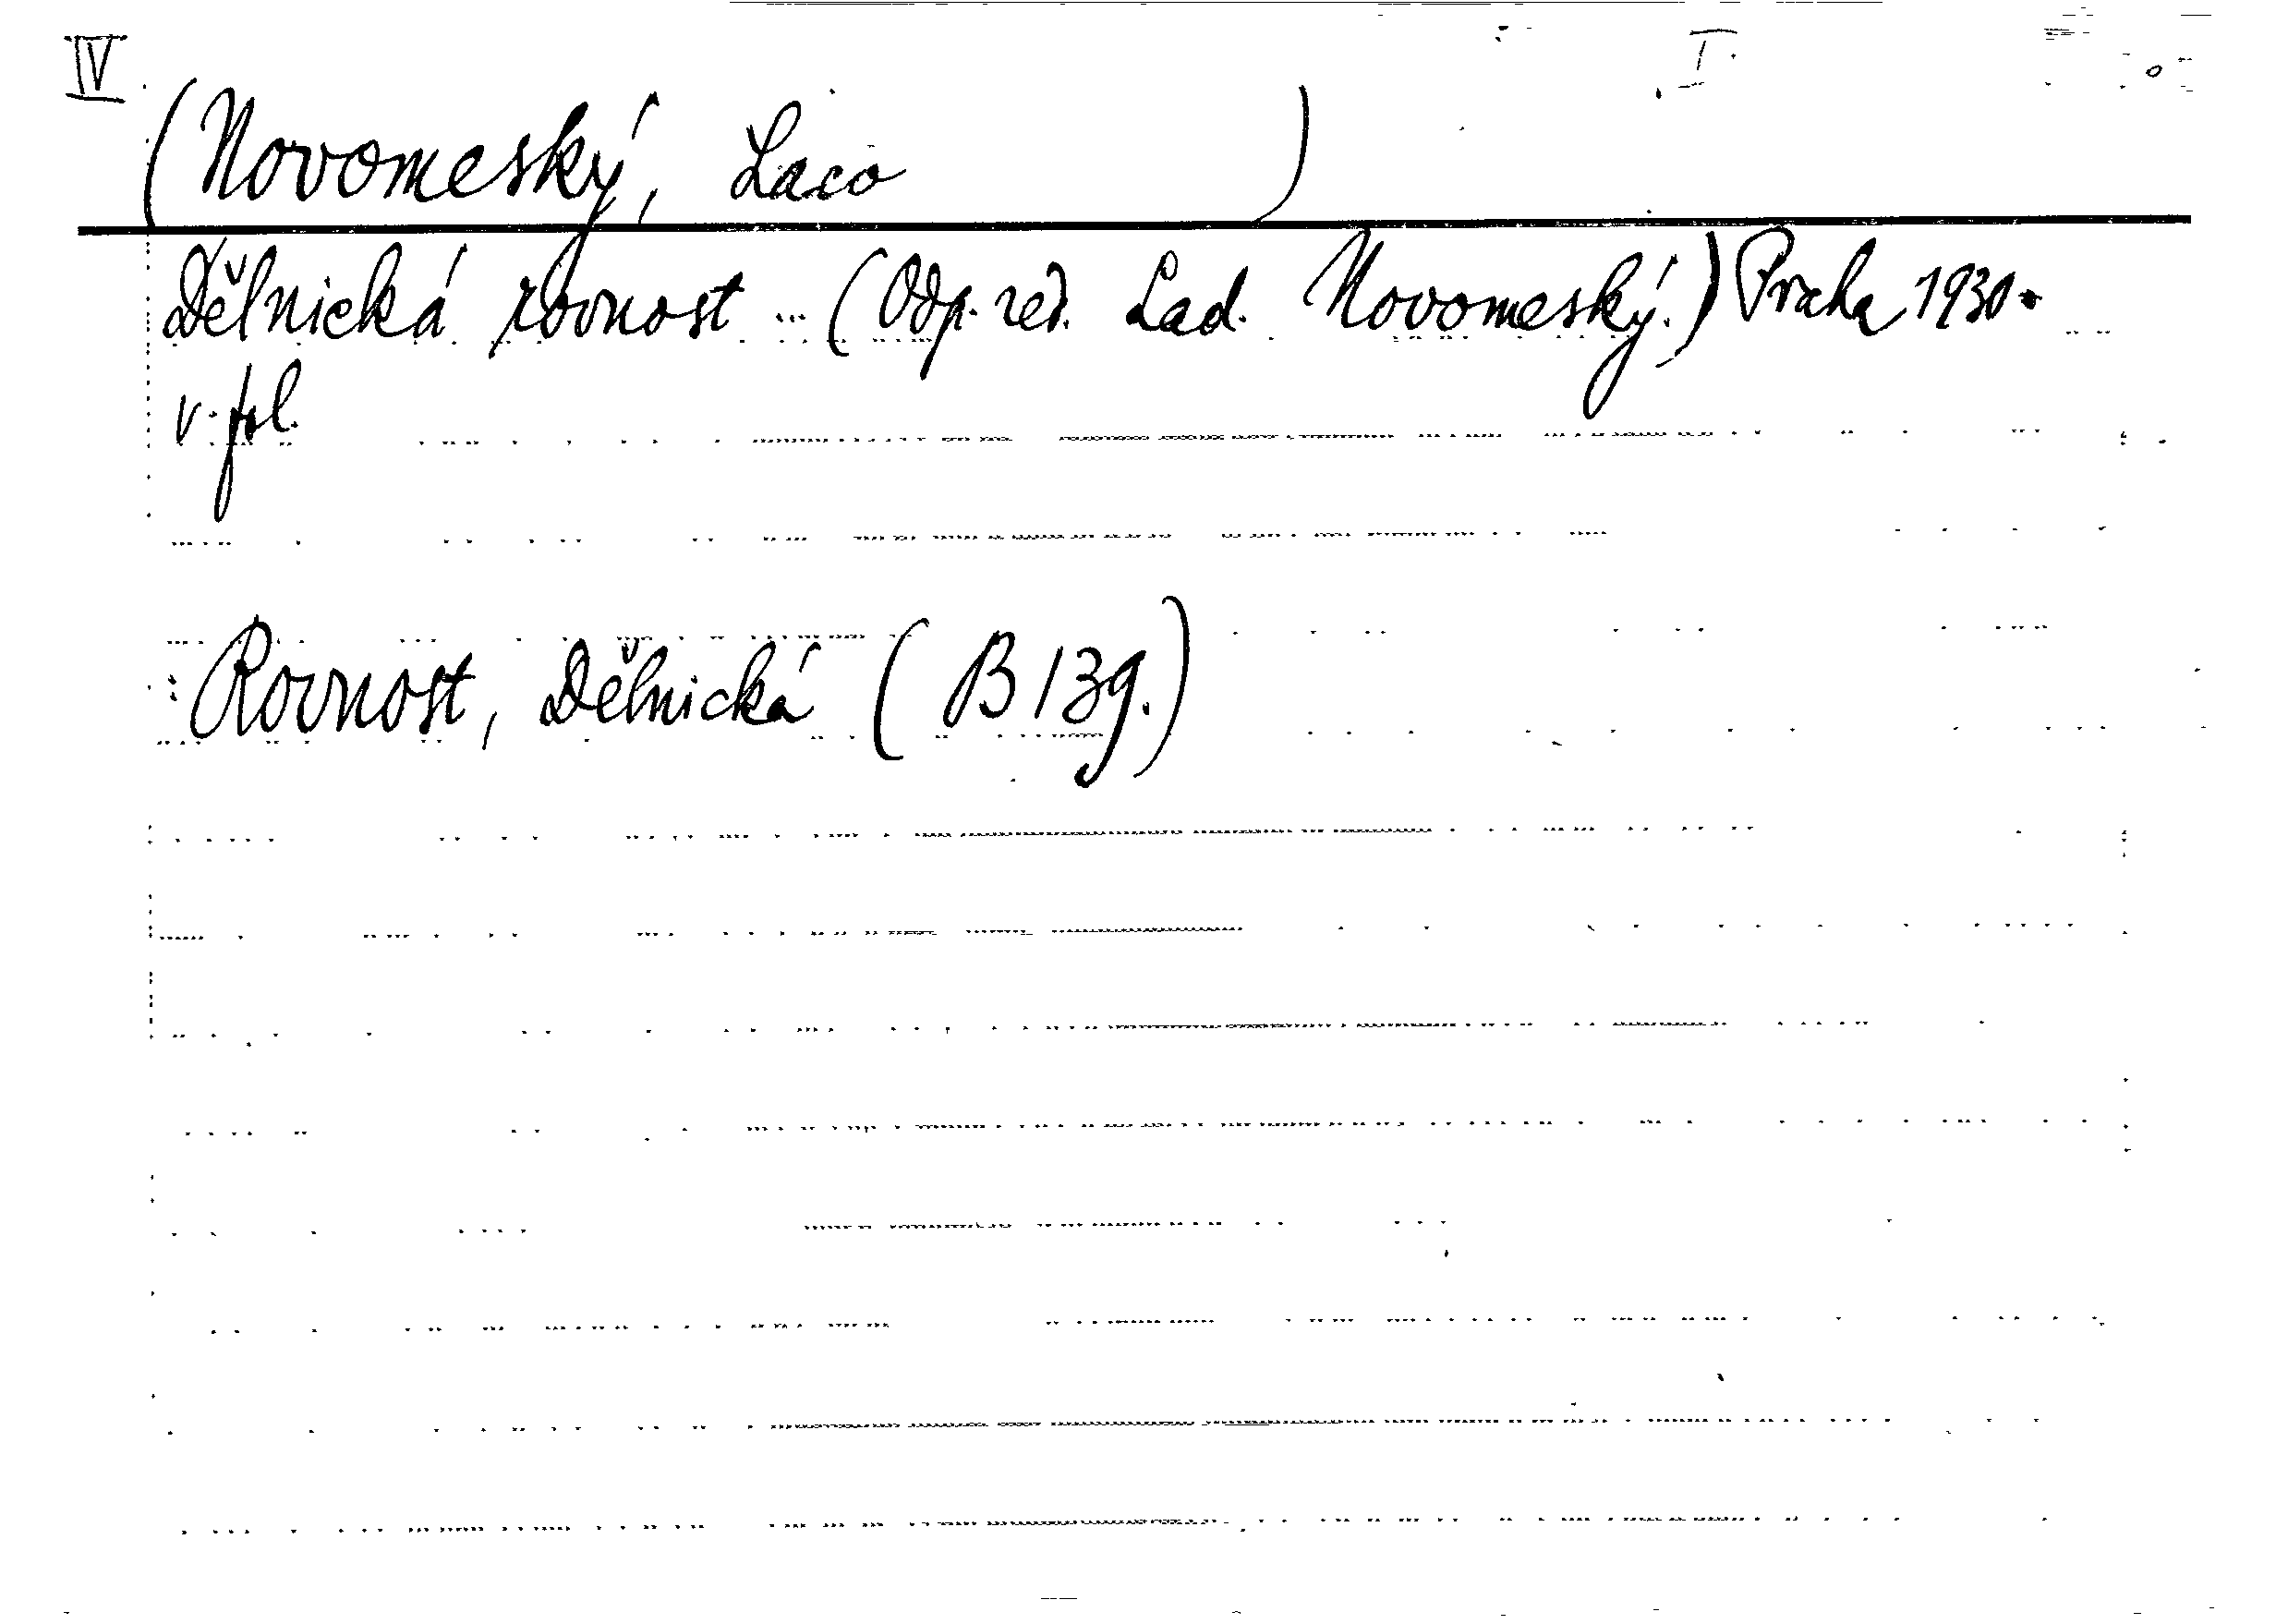 IV I.
(Novomeský, Laco )
Dělnická rovnost ... (Odp. red. Lad. Novomeský.) Praha 1930.
v. fol.
Rovnost, Dělnická (B 139.)